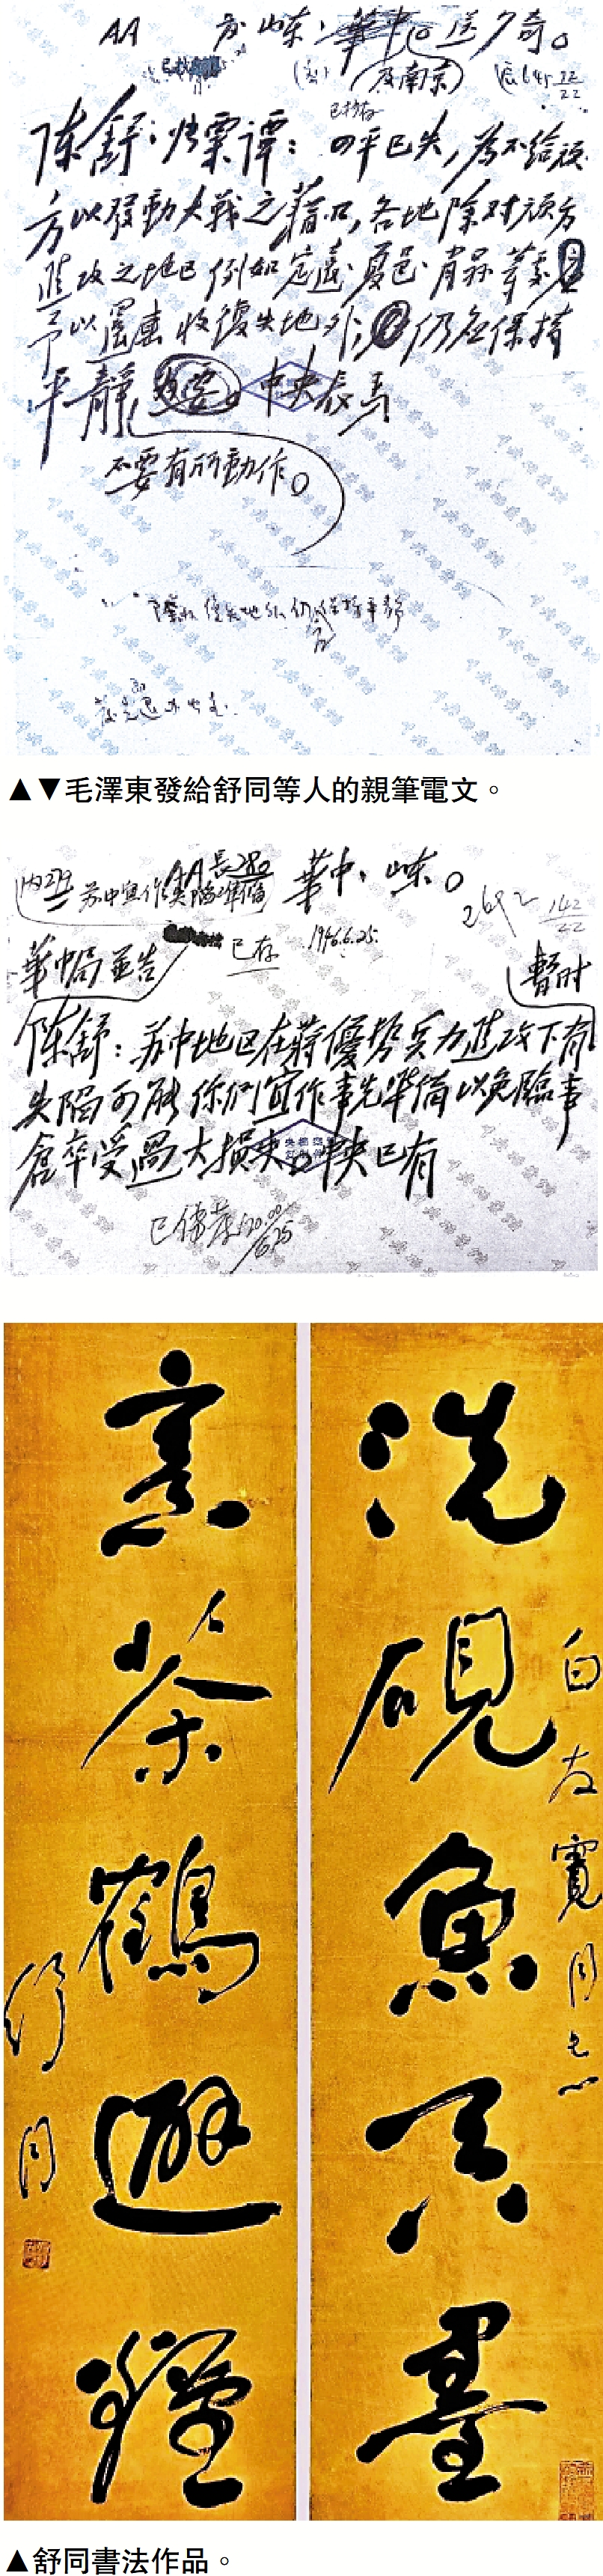 AA 山東、華中。送少奇。
(及南京)
已抄存
陳舒，粟譚：四平已失，為不給頑
方以發動大戰之藉口，各地除對頑方
進攻之地區例如定遠夏邑肖縣等處
予以還擊收復失地外，仍應保持
平靜 中央辰馬
不要有所動作。
▲▼毛澤東發給舒同等人的親筆電文。
AA 華中、山東。
蘇中宜作失陷準備
已存 1946.6.25.
華中局並告
暫時
陳舒：蘇中地區在蔣優勢兵力進攻下有
失陷可能你們宜作事先準備以免臨事
倉卒受過大損失。中央已有
洗硯魚吞墨
烹茶鶴避煙
舒同
▲舒同書法作品。